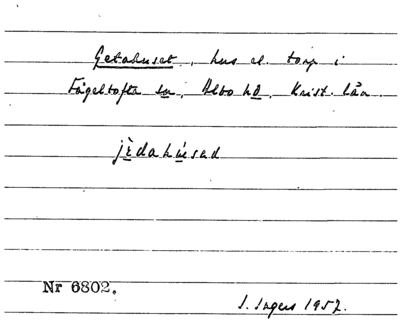 Getahuset, hus el. torp i
Fågeltofta sn, Albo hd, Krist. län.
jèdahúsad
Nr 6802.
I. Ingers 1957.